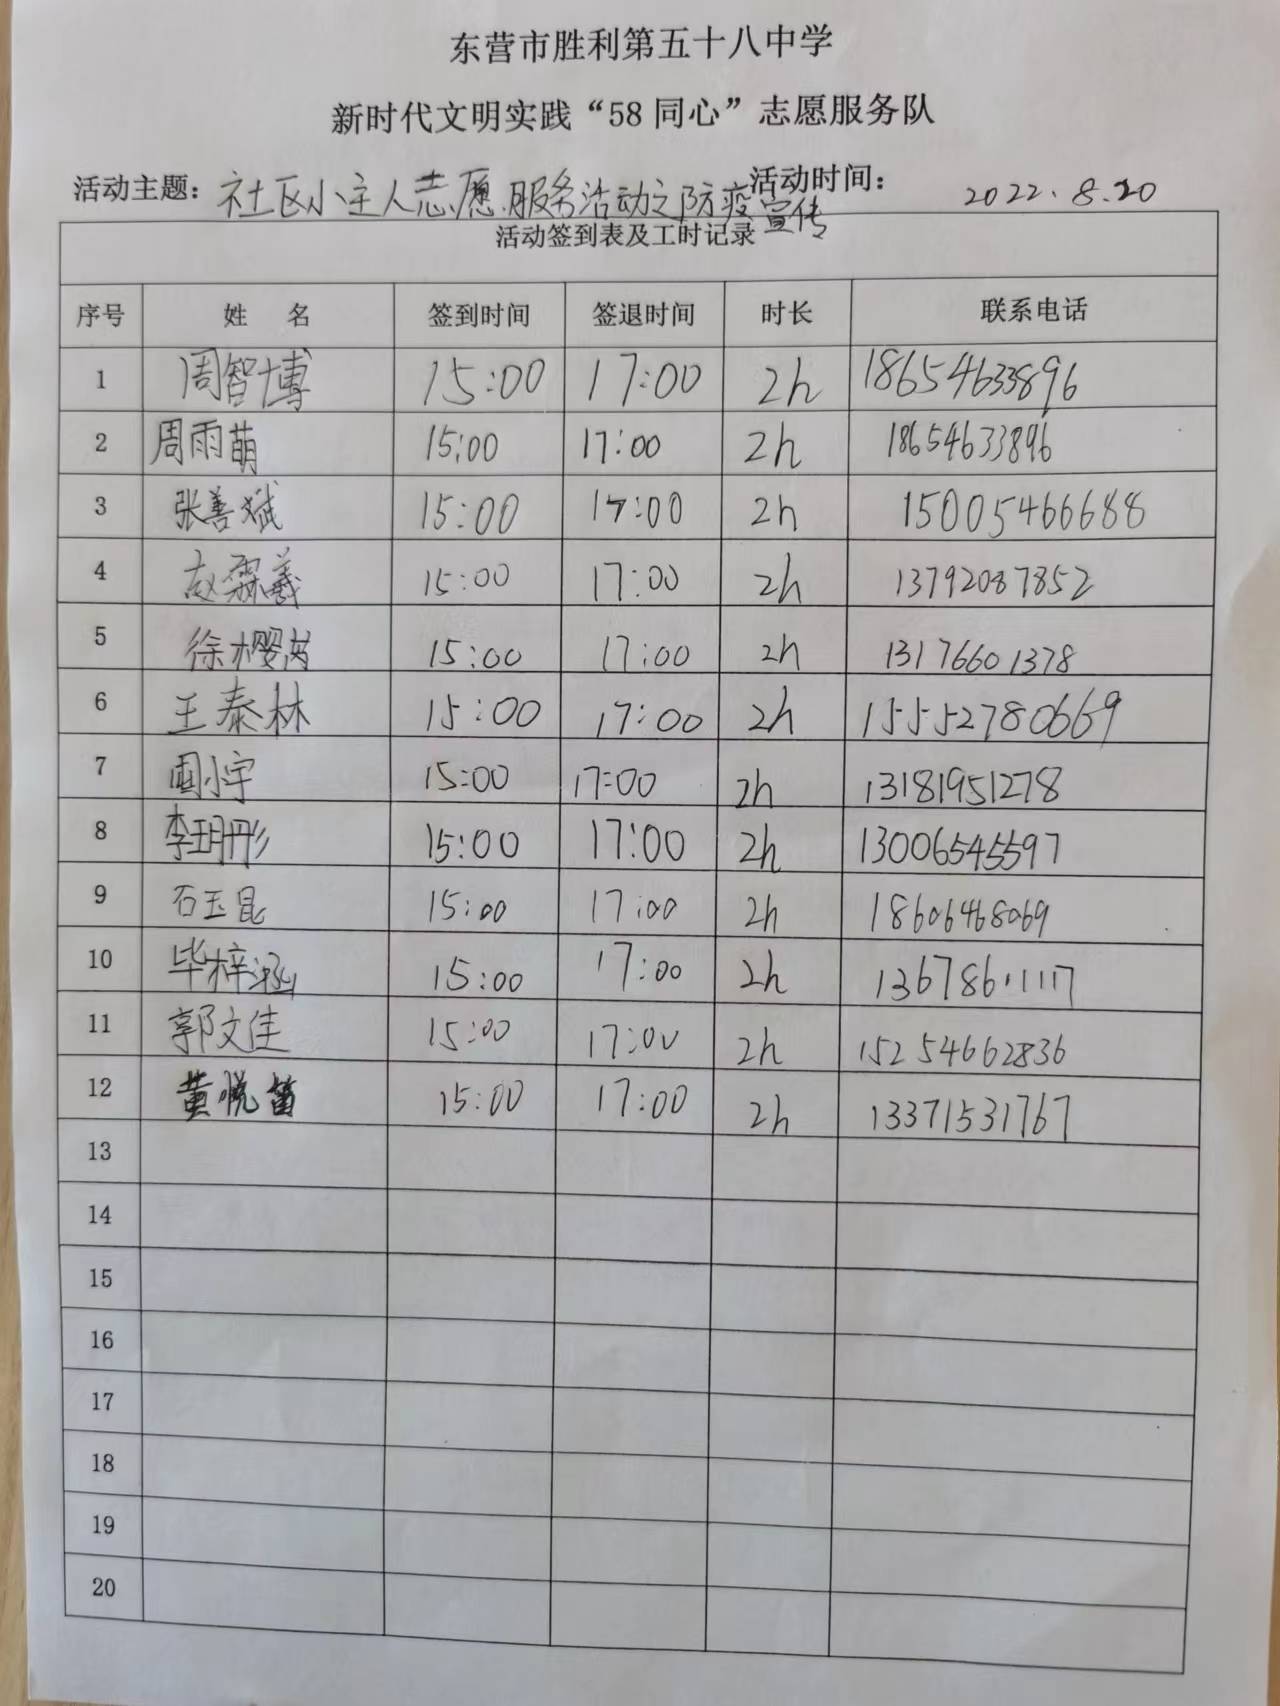 东营市胜利第五十八中学
新时代文明实践“58同心”志愿服务队
活动主题：社区小主人志愿服务活动之防疫宣传 活动时间：2022.8.20
活动签到表及工时记录
序号 姓 名 签到时间 签退时间 时长 联系电话
1 周智博 15:00 17:00 2h 18654633896
2 周雨萌 15:00 17:00 2h 18654633896
3 张善斌 15:00 17:00 2h 15005466688
4 赵霖羲 15:00 17:00 2h 13792087852
5 徐樱芮 15:00 17:00 2h 13176601378
6 王泰林 15:00 17:00 2h 15552780669
7 周小宇 15:00 17:00 2h 13181951278
8 李玥彤 15:00 17:00 2h 13006545597
9 石玉昆 15:00 17:00 2h 18606468069
10 毕梓涵 15:00 17:00 2h 13678611117
11 郭文佳 15:00 17:00 2h 15254662836
12 黄悦笛 15:00 17:00 2h 13371531767
13
14
15
16
17
18
19
20